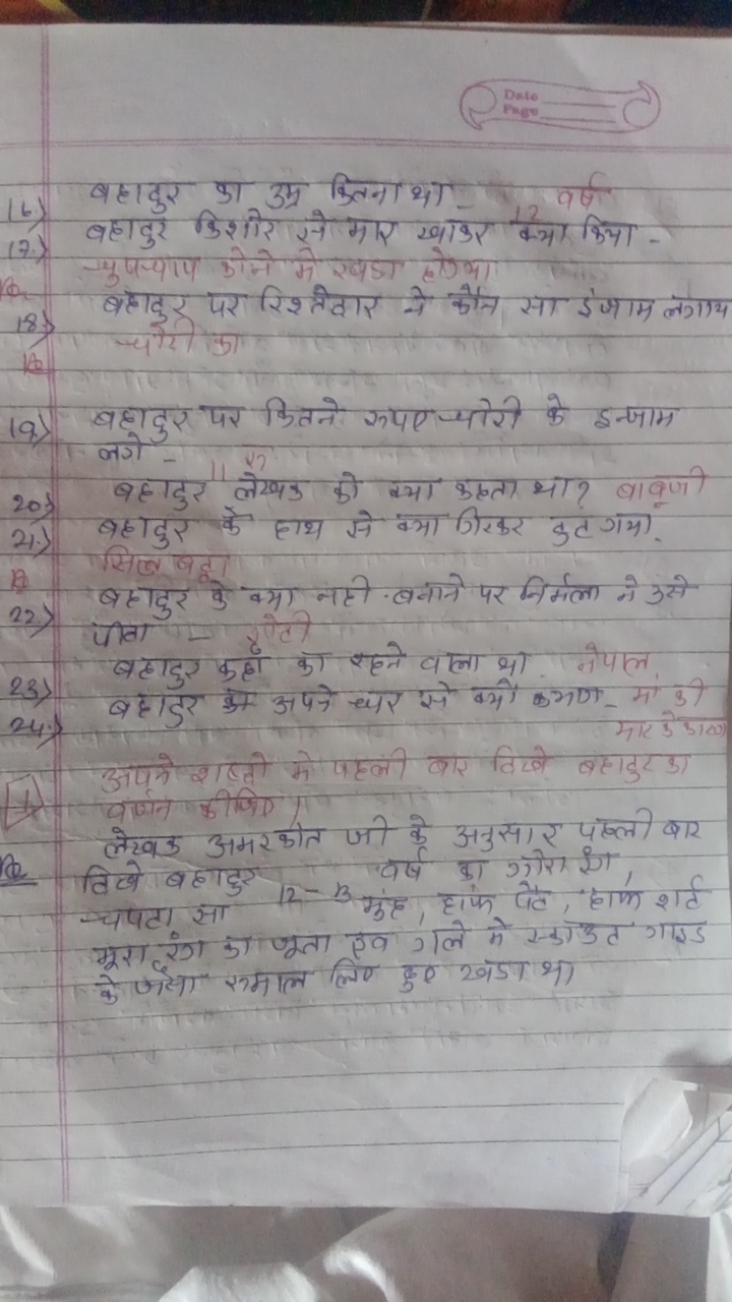 Date
Page
16) बहादुर का उम्र कितना था - 12 वर्ष
17) बहादुर किशोर से मार खाकर क्या किया -
चुपचाप कोने मे खडा होगया
18) बहादुर पर रिश्तेदार ने कौन सा इंजाम लगाय
चोरी का
19) बहादुर पर कितने रुपए चोरी के इन्जाम
लगे - 11 रु
20) बहादुर लेखक को क्या कहता था? बाबूजी
21) बहादुर के हाथ से क्या गिरकर टुट गया.
सिल बट्टा
22) बहादुर के क्या नही बनाने पर निर्मला ने उसे
पीता - रोटी
23) बहादुर कहाँ का रहने वाला था नेपाल
24) बहादुर अपने घर से क्यो - माँ की
मार के कारण
1 अपने शब्दो मे पहली बार दिखे बहादुर का
वर्णन कीजिए।
लेखक अमरकांत जी के अनुसार पहली बार
दिखे बहादुर 12-13 वर्ष का गोरा रंग,
चपटा सा मुंह, हाफ पैंट, हाफ शर्ट
भूरा रंग का जूता एव गले मे स्काऊट गाइड
के जैसा रुमाल लिए हुए खडा था